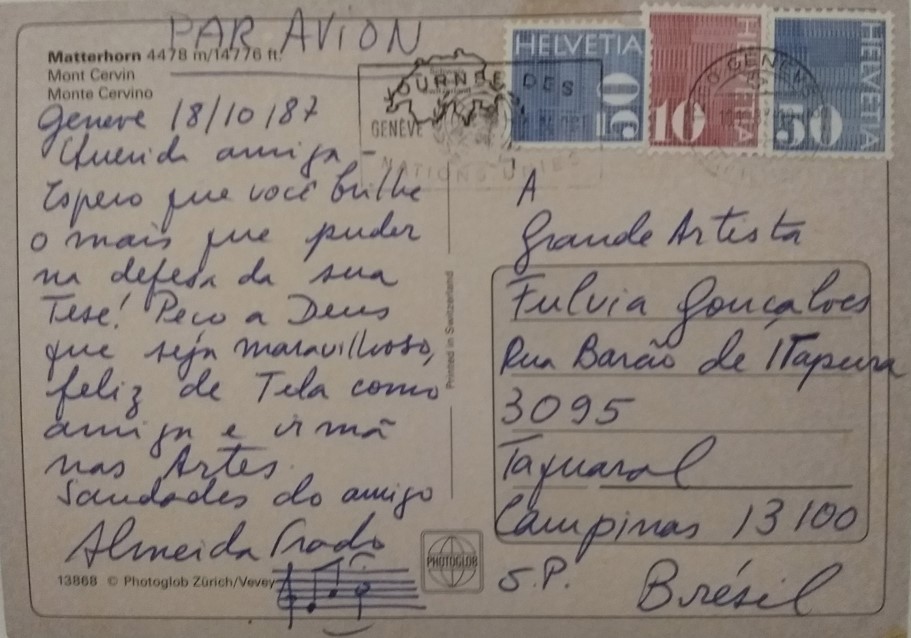 PAR AVION
Matterhorn 4478 m/14776 ft.
Mont Cervin
Monte Cervino
Genève 18/10/87
Querida amiga -
Espero que você brilhe
o mais que puder
na defesa da sua
Tese! Peço a Deus
que seja maravilhoso,
feliz de Tela como
amiga e irmã
nas Artes.
Saudades do amigo
Almeida Prado
13868 © Photoglob Zürich/Vevey
Printed in Switzerland
PHOTOGLOB
JOURNÉE DES
GENÈVE
NATIONS UNIES
HELVETIA
50
HELVETIA
10
HELVETIA
50
A
Grande Artista
Fulvia Gonçalves
Rua Barão de ITapura
3095
Taquaral
Campinas 13100
S.P. Brésil